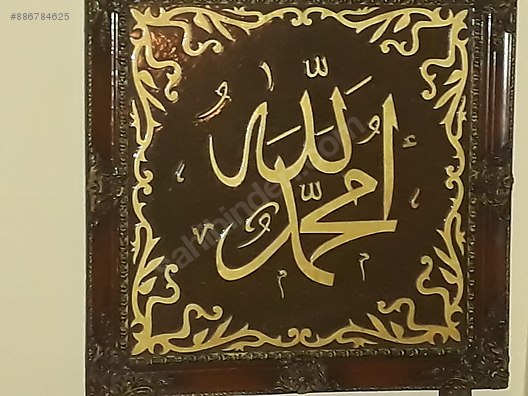 #886784625
الله
محمد
sahibinden.com